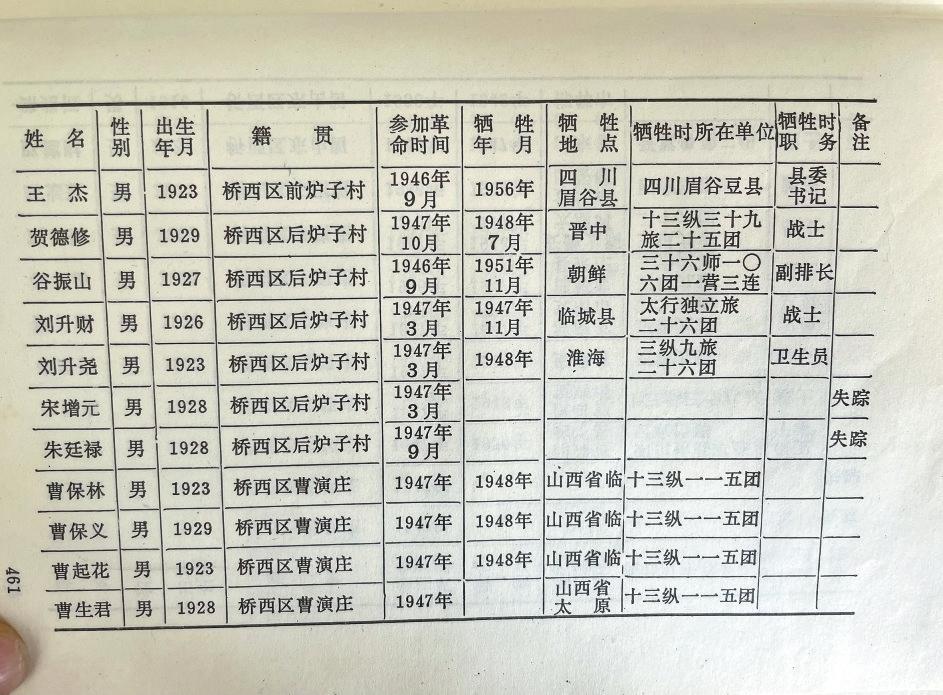 姓 名 性别 出生年月 籍 贯 参加革命时间 牺牲年月 牺牲地点 牺牲时所在单位 牺牲时职务 备注
王 杰 男 1923 桥西区前炉子村 1946年9月 1956年 四川眉谷县 四川眉谷豆县 县委书记
贺德修 男 1929 桥西区后炉子村 1947年10月 1948年7月 晋中 十三纵三十九旅二十五团 战士
谷振山 男 1927 桥西区后炉子村 1946年9月 1951年11月 朝鲜 三十六师一〇六团一营三连 副排长
刘升财 男 1926 桥西区后炉子村 1947年3月 1947年11月 临城县 太行独立旅二十六团 战士
刘升尧 男 1923 桥西区后炉子村 1947年3月 1948年 淮海 三纵九旅二十六团 卫生员
宋增元 男 1928 桥西区后炉子村 1947年3月 失踪
朱廷禄 男 1928 桥西区后炉子村 1947年9月 失踪
曹保林 男 1923 桥西区曹演庄 1947年 1948年 山西省临 十三纵一一五团
曹保义 男 1929 桥西区曹演庄 1947年 1948年 山西省临 十三纵一一五团
曹起花 男 1923 桥西区曹演庄 1947年 1948年 山西省临 十三纵一一五团
曹生君 男 1928 桥西区曹演庄 1947年 山西省太原 十三纵一一五团
461